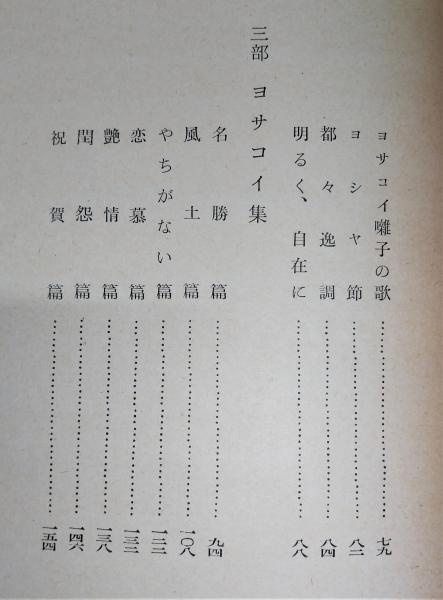 ヨサコイ囃子の歌……………七九
ヨシヤ節……………八二
都々逸調……………八四
明るく、自在に……………八八
三部 ヨサコイ集
名勝篇……………九四
風土篇……………一〇八
やちがない篇……………一二二
恋慕篇……………一三二
艶情篇……………一三八
閨怨篇……………一四六
祝賀篇……………一五四